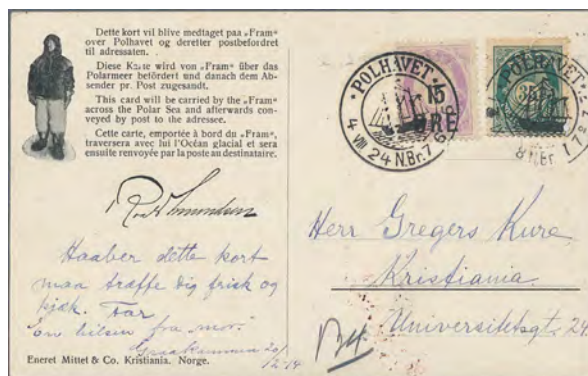 Dette kort vil blive medtaget paa „Fram"
over Polhavet og deretter postbefordret
til adressaten.
Diese Karte wird von „Fram" über das
Polarmeer befördert und danach dem Ab-
sender pr. Post zugesandt.
This card will be carried by the „Fram"
across the Polar Sea and afterwards con-
veyed by post to the adressee.
Cette carte, emportée à bord du „Fram",
traversera avec lui l'Océan glacial et sera
ensuite renvoyée par la poste au destinataire.
Roald Amundsen
Haaber dette kort
maa træffe dig frisk og
kjæk. Far
en hilsen fra „mor."
Graakammen 20/
2-14
Eneret Mittet & Co. Kristiania. Norge.
POLHAVET
4 VIII 24 N.Br. 76
15
ØRE
POLHAVET
35
N.Br.
Herr Gregers Kure
Kristiania.
Universitetsgt. 24.